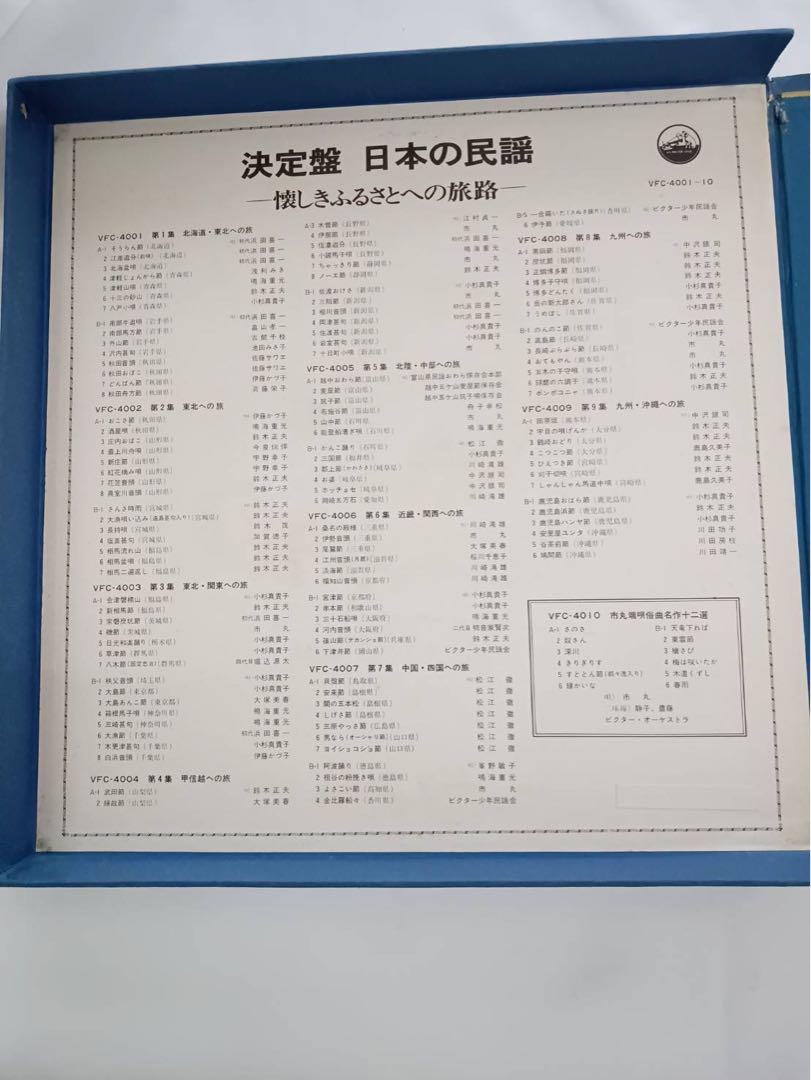 決定盤 日本の民謡
―懐しきふるさとへの旅路―
VFC-4001~10
VFC-4001 第1集 北海道・東北への旅
A-1 そうらん節(北海道) 初代浜田喜一
2 江差追分(前唄)(北海道) 初代浜田喜一
3 北海盆唄(北海道) 初代浜田喜一
4 津軽じょんから節(青森県) 浅利みき
5 津軽山唄(青森県) 鳴海重光
6 十三の砂山(青森県) 鈴木正夫
7 八戸小唄(青森県) 小杉真貴子
B-1 南部牛追唄(岩手県) 初代浜田喜一
2 南部馬方節(岩手県) 畠山孝一
3 外山節(岩手県) 古館千枝
4 沢内甚句(岩手県) 池田みさ子
5 秋田音頭(秋田県) 佐藤サワエ
6 秋田おばこ(秋田県) 佐藤サワエ
7 どんぱん節(秋田県) 伊藤かづ子
8 秋田舟方節(秋田県) 斉藤栄子
VFC-4002 第2集 東北への旅
A-1 おこさ節(秋田県) 伊藤かづ子
2 酒屋唄(秋田県) 鳴海重光
3 庄内おばこ(山形県) 鈴木正夫
4 最上川舟唄(山形県) 今泉侃惇
5 新庄節(山形県) 宇野幸子
6 紅花摘み唄(山形県) 宇野幸子
7 花笠音頭(山形県) 鈴木正夫
8 真室川音頭(山形県) 伊藤かづ子
B-1 さんさ時雨(宮城県) 鈴木正夫
2 大漁唄い込み(遠島甚句入り)(宮城県) 鈴木正夫
3 長持唄(宮城県) 鈴木茂
4 塩釜甚句(宮城県) 加賀徳子
5 相馬流れ山(福島県) 鈴木正夫
6 相馬盆唄(福島県) 鈴木正夫
7 相馬二遍返し(福島県) 鈴木正夫
VFC-4003 第3集 東北・関東への旅
A-1 会津磐梯山(福島県) 小杉真貴子
2 新相馬節(福島県) 鈴木正夫
3 常磐炭坑節(茨城県) 初代浜田喜一
4 磯節(茨城県) 市丸
5 日光和楽踊り(栃木県) 小杉真貴子
6 草津節(群馬県) 小杉真貴子
7 八木節(国定忠治)(群馬県) 四代目堀込源太
B-1 秩父音頭(埼玉県) 小杉真貴子
2 大島節(東京都) 小杉真貴子
3 大島あんこ節(東京都) 大塚美春
4 箱根馬子唄(神奈川県) 鳴海重光
5 三崎甚句(神奈川県) 鳴海重光
6 大漁節(千葉県) 初代浜田喜一
7 木更津甚句(千葉県) 小杉真貴子
8 白浜音頭(千葉県) 伊藤かづ子
VFC-4004 第4集 甲信越への旅
A-1 武田節(山梨県) 鈴木正夫
2 縁故節(山梨県) 大塚美春
A-3 木曽節(長野県) 江村貞一
4 伊那節(長野県) 市丸
5 信濃追分(長野県) 初代浜田喜一
6 小諸馬子唄(長野県) 鳴海重光
7 ちゃっきり節(静岡県) 市丸
8 ノーエ節(静岡県) 鈴木正夫
B-1 佐渡おけさ(新潟県) 小杉真貴子
2 三階節(新潟県) 市丸
3 相川音頭(新潟県) 初代浜田喜一
4 両津甚句(新潟県) 小杉真貴子
5 佐渡甚句(新潟県) 小杉真貴子
6 岩室甚句(新潟県) 小杉真貴子
7 十日町小唄(新潟県) 小杉真貴子
VFC-4005 第5集 北陸・中部への旅
A-1 越中おわら節(富山県) 富山県民謡おわら保存会本部
2 麦屋節(富山県) 越中五ケ山麦屋節保存会
3 筑子節(富山県) 越中五ケ山筑子唄保存会
4 布施谷節(富山県) 舟子幸松
5 山中節(石川県) 市丸
6 能登船漕ぎ唄(石川県) 鳴海重光
B-1 かんこ踊り(石川県) 松江徹
2 三国節(福井県) 小杉真貴子
3 郡上節(かわさき)(岐阜県) 川崎滝雄
4 お婆(岐阜県) 中沢銀司
5 ホッチョセ(岐阜県) 中沢銀司
6 岡崎五万石(愛知県) 川崎滝雄
VFC-4006 第6集 近畿・関西への旅
A-1 桑名の殿様(三重県) 川崎滝雄
2 伊勢音頭(三重県) 市丸
3 尾鷲節(三重県) 大塚美春
4 江州音頭(滋賀県) 桜川千恵子
5 淡海節(滋賀県) 川崎滝雄
6 福知山音頭(京都府) 川崎滝雄
B-1 宮津節(京都府) 小杉真貴子
2 串本節(和歌山県) 小杉真貴子
3 三十石船唄(大阪府) 鳴海重光
4 河内音頭(大阪府) 二代目明音家賢次
5 篠山節(デカンショ節)(兵庫県) 鈴木正夫
6 下津井節(岡山県) ビクター少年民謡会
VFC-4007 第7集 中国・四国への旅
A-1 貝殻節(鳥取県) 松江徹
2 安来節(島根県) 松江徹
3 関の五本松(島根県) 松江徹
4 しげさ節(島根県) 松江徹
5 三原やっさ節(広島県) 松江徹
6 男なら(オーシャリ節)(山口県) 松江徹
7 ヨイショコショ節(山口県) 松江徹
B-1 阿波踊り(徳島県) 峯野敏子
2 祖谷の粉挽き唄(徳島県) 鳴海重光
3 よさこい節(高知県) 市丸
4 金比羅船々(香川県) ビクター少年民謡会
B-5 一合蒔いた(さぬき踊り)(香川県) ビクター少年民謡会
6 伊予節(愛媛県) 市丸
VFC-4008 第8集 九州への旅
A-1 黒田節(福岡県) 中沢銀司
2 炭坑節(福岡県) 鈴木正夫
3 正調博多節(福岡県) 鈴木正夫
4 博多子守唄(福岡県) 小杉真貴子
5 博多どんたく(福岡県) 鈴木正夫
6 岳の新太郎さん(佐賀県) 小杉真貴子
7 うめぼし(佐賀県) 小杉真貴子
B-1 のんのこ節(佐賀県) ビクター少年民謡会
2 高島節(長崎県) 小杉真貴子
3 長崎ぶらぶら節(長崎県) 市丸
4 おてもやん(熊本県) 市丸
5 五木の子守唄(熊本県) 小杉真貴子
6 球磨の六調子(熊本県) 鈴木正夫
7 ポンポコニャ(熊本県) 小杉真貴子
VFC-4009 第9集 九州・沖縄への旅
A-1 田原坂(熊本県) 中沢銀司
2 宇目の唄げんか(大分県) 鈴木正夫
3 鶴崎おどり(大分県) 鈴木正夫
4 こつこつ節(大分県) 鹿島久美子
5 ひえつき節(宮崎県) 鈴木正夫
6 刈干切唄(宮崎県) 鈴木正夫
7 しゃんしゃん馬道中唄(宮崎県) 鹿島久美子
B-1 鹿児島おはら節(鹿児島県) 小杉真貴子
2 鹿児島浜節(鹿児島県) 鈴木正夫
3 鹿児島ハンヤ節(鹿児島県) 小杉真貴子
4 安里屋ユンタ(沖縄県) 川田功子
5 谷茶前節(沖縄県) 川田房枝
6 鳩間節(沖縄県) 川田靖一
VFC-4010 市丸端唄俗曲名作十二選
A-1 さのさ B-1 天竜下れば
2 奴さん 2 東雲節
3 深川 3 槍さび
4 きりぎりす 4 梅は咲いたか
5 すととん節(都々逸入り) 5 木遣くずし
6 緑かいな 6 春雨
唄) 市丸
静子、豊藤
ビクター・オーケストラ